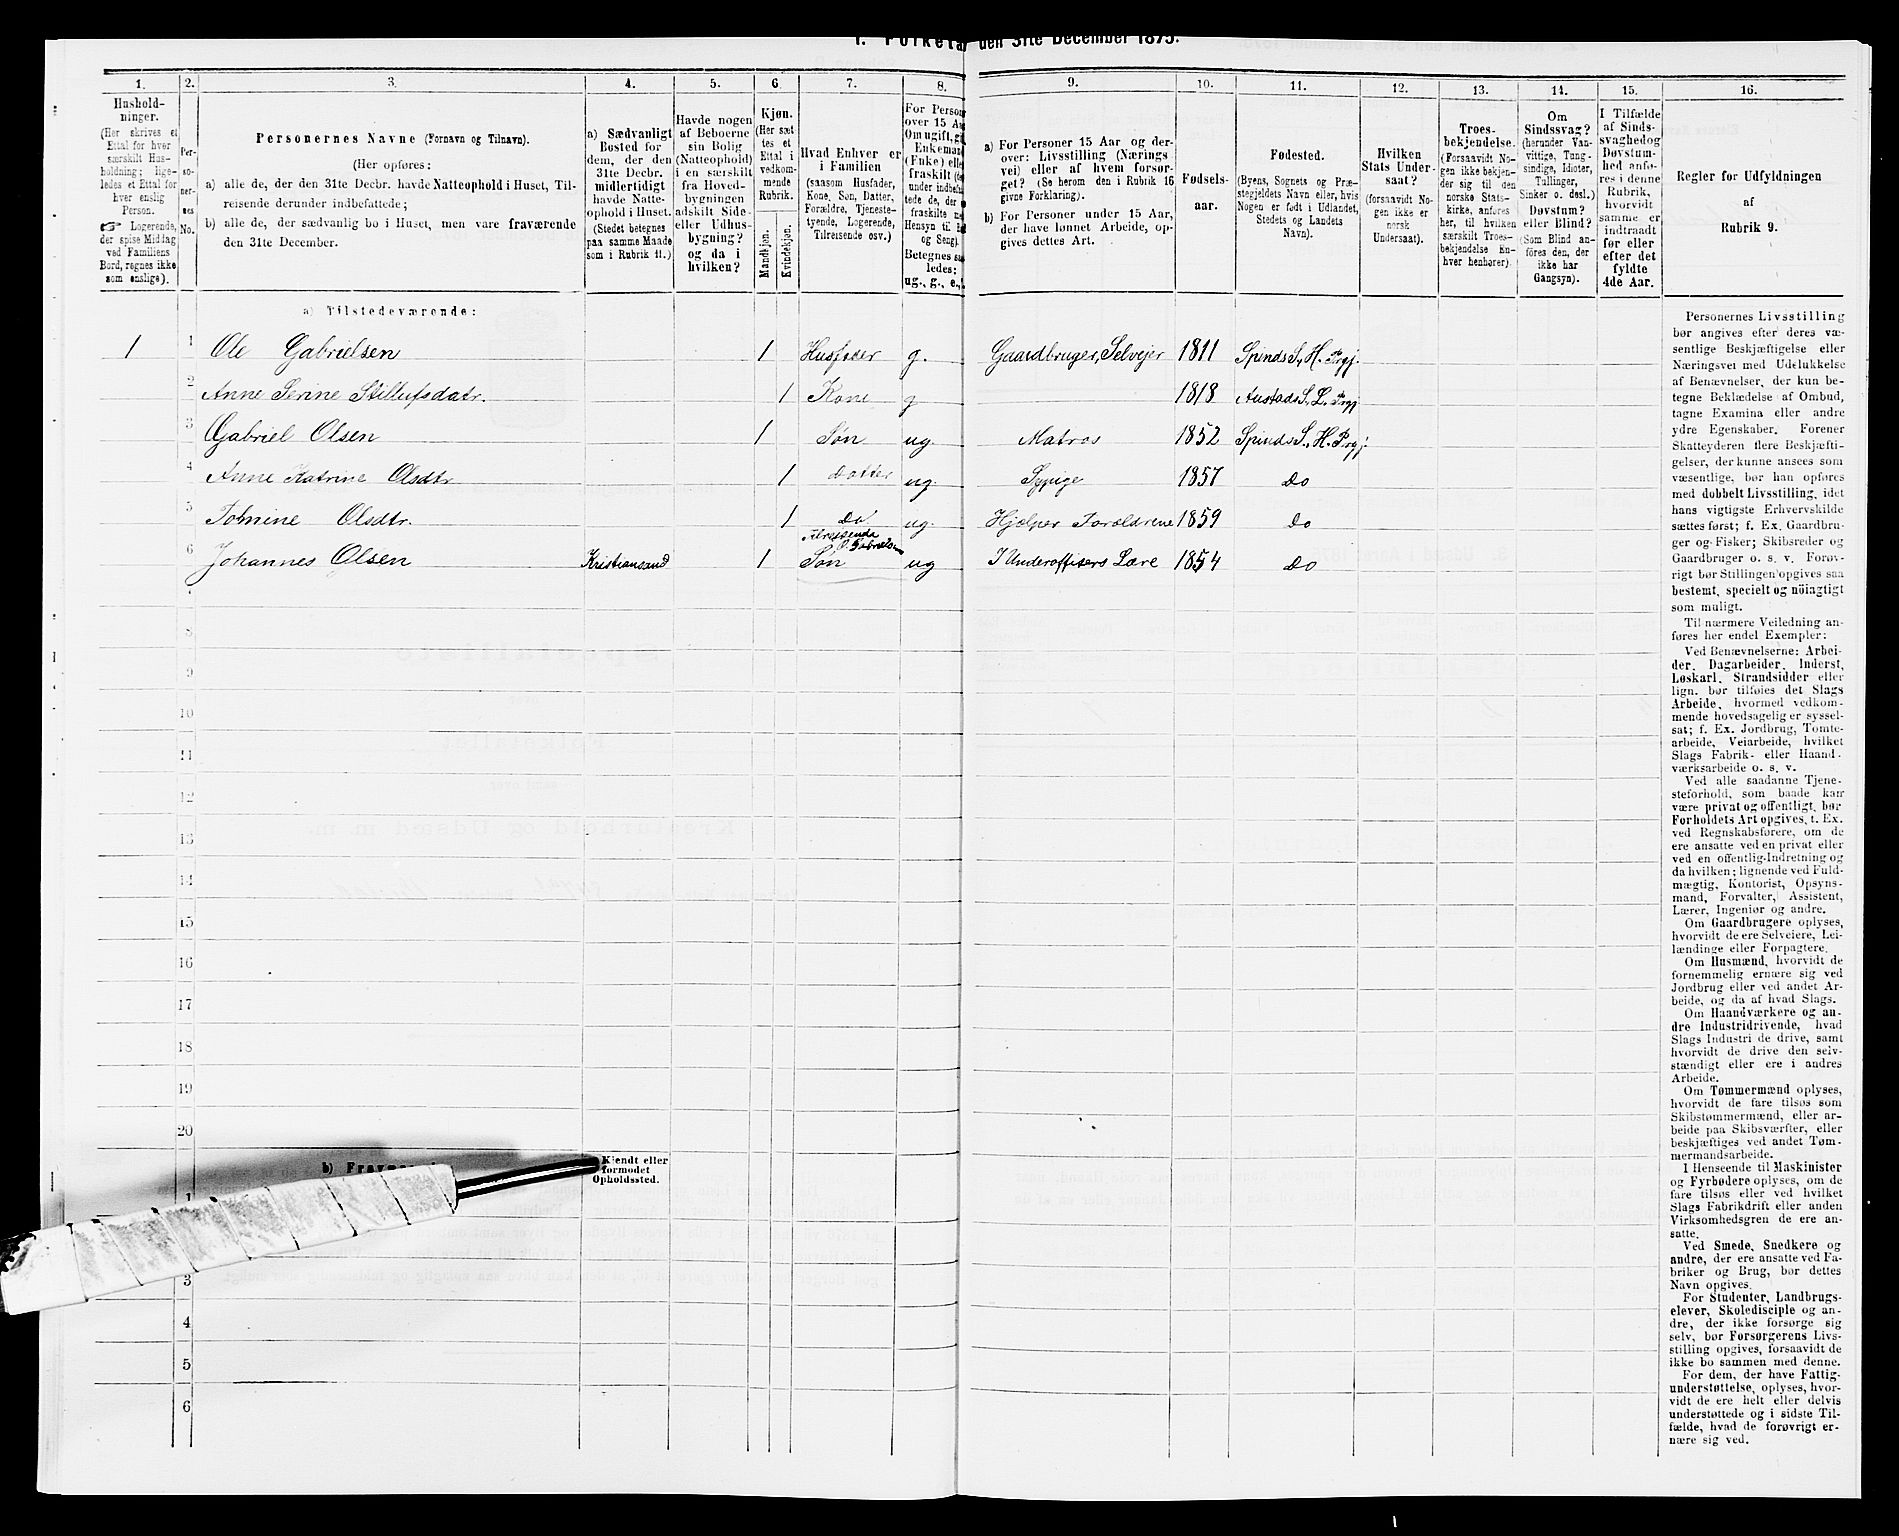 den 31te December 1875.
1.
2.
3.
4.
5.
6.
7.
8.
9.
10.
11.
12.
13.
14.
15.
16.
Hushold-
ninger.
(Her skrives et
Ettal for hver
særskilt Hus-
holdning; lige-
ledes et Ettal for
hver enslig
Person.
☞ Logerende,
der spise Middag
ved Familiens
Bord, regnes ikke
som enslige).
Per-
so-
ner-
nes
No.
Personernes Navne (Fornavn og Tilnavn).
(Her opføres:
a) alle de, der den 31te Decbr. havde Natteophold i Huset, Til-
reisende derunder indbefattede;
b) alle de, der sædvanlig bo i Huset, men vare fraværende
den 31te December.
a) Sædvanligt
Bosted for
dem, der den
31te Decbr.
midlertidigt
havde Natte-
ophold i Huset.
(Stedet betegnes
paa samme Maade
som i Rubrik 11.)
Havde nogen
af Beboerne
sin Bolig
(Natteophold)
i en særskilt
fra Hoved-
bygningen
adskilt Side-
eller Udhus-
bygning?
og da i
hvilken?
Kjøn.
(Her sæt
tes et
Ettal i
vedkom-
mende
Rubrik.
Mandkjøn.
Kvindekjøn.
Hvad Enhver er
i Familien
(saasom Husfader,
Kone, Søn, Datter,
Forældre, Tjeneste-
tyende, Logerende,
Tilreisende osv.)
For Person
over 15 A
Om ugift, gi
Enkemand
(Enke) elle
fraskilt
under indbef
tede de, der
fraskilte
Hensyn til
og Seng).
Betegnes
ledes:
ug., g., e.,
a) For Personer 15 Aar og der-
over: Livsstilling (Nærings
vei) eller af hvem forsør-
get? (Se herom den i Rubrik 16
givne Forklaring).
b) For Personer under 15 Aar,
der have lønnet Arbeide, op-
gives dettes Art.
Fødsels-
aar.
Fødested.
(Byens, Sognets og Præ-
stegjeldets Navn eller, hvis
Nogen er født i Udlandet,
Stedets og Landets
Navn).
Hvilken
Stats Under-
saat?
(forsaavidt No-
gen ikke er
norsk
Undersaat).
Troes-
bekjendelse.
(Forsaavidt No-
gen ikke bekjen-
der sig til den
norske Stats-
kirke, anføres
her, til hvilken
særskilt Troes-
bekjendelse En-
hver henhører).
Om
Sindssvag?
(herunder Van-
vittige, Tung-
sindige, Idioter,
Tullinger,
Sinker o. desl.)
Døvstum?
eller Blind?
(Som Blind an-
føres den, der
ikke har
Gangsyn).
I Tilfælde
af Sinds-
svaghed og
Døvstum-
hed anfø-
res i denne
Rubrik,
hvorvidt
samme er
indtraadt
før eller
efter det
fyldte
4de Aar.
Regler for Udfyldningen
af
Rubrik 9.
a) Tilstedeværende:
1 1 Ole Gabrielsen 1 Husfader g. Gaardbruger, Selvejer 1811 Spinds S., H. Prgj.
2 Anne Serine Stillufsdatr. 1 Kone g 1818 Austads S., L. Prgj
3 Gabriel Olsen 1 Søn ug Matros 1852 Spinds S., H. Prgj.
4 Anne Katrine Olsdtr 1 Datter ug. Sypige 1857 Do
5 Tomine Olsdtr. 1 Do ug. Hjælper Forældrene 1859 Do
Tilreisende
O. Gabrielsen
6 Johannes Olsen Kristiansand 1 Søn ug I Underofficers Lære 1854 Do
7
8
9
10
11
12
13
14
15
16
17
18
19
20
b)
Kjendt eller
formodet
Opholdssted.
1
3
4
5
6
Personernes Livsstilling
bør angives efter deres væ-
sentlige Beskjæftigelse eller
Næringsvei med Udelukkelse
af Benævnelser, der kun be-
tegne Beklædelse af Ombud,
tagne Examina eller andre
ydre Egenskaber. Forener
Skatteyderen flere Beskjæfti-
gelser, der kunne ansees som
væsentlige, bør han opføres
med dobbelt Livsstilling, idet
hans vigtigste Erhvervskilde
sættes først; f. Ex. Gaardbru-
ger og Fisker; Skibsreder og
Gaardbruger o. s. v. Forøv-
rigt bør Stillingen opgives saa
bestemt, specielt og nöiagtigt
som muligt.
Til nærmere Veiledning an-
føres her endel Exempler:
Ved Benævnelserne: Arbei-
der, Dagarbeider, Inderst,
Løskarl, Strandsidder eller
lign. bør tilføies det Slags
Arbeide, hvormed vedkom-
mende hovedsagelig er syssel-
sat; f. Ex. Jordbrug, Tomte-
arbeide, Veiarbeide, hvilket
Slags Fabrik- eller Haand-
værksarbeide o. s. v.
Ved alle saadanne Tjene-
steforhold, som baade kan
være privat og offentligt, bør
Forholdets Art opgives, t. Ex.
ved Regnskabsførere, om de
ere ansatte ved en privat eller
ved en offentlig Indretning og
da hvilken; lignende ved Fuld-
mægtig, Kontorist, Opsyns-
mand, Forvalter, Assistent,
Lærer, Ingeniør og andre.
Om Gaardbrugere oplyses,
hvorvidt de ere Selveiere, Lei-
lændinge eller Forpagtere.
Om Husmænd, hvorvidt de
fornemmelig ernære sig ved
Jordbrug eller ved andet Ar-
beide, og da af hvad Slags.
Om Haandværkere og an-
dre Industridrivende, hvad
Slags Industri de drive, samt
hvorvidt de drive den selv-
stændigt eller ere i andres
Arbeide.
Om Tømmermænd oplyses,
hvorvidt de fare tilsøs som
Skibstømmermænd, eller ar-
beide paa Skibsværfter, eller
beskjæftiges ved andet Tøm-
mermandsarbeide.
I Henseende til Maskinister
og Fyrbødere oplyses, om de
fare tilsøs eller ved hvilket
Slags Fabrikdrift eller anden
Virksomhedsgren de ere an-
satte.
Ved Smede, Snedkere og
andre, der ere ansatte ved Fa-
briker og Brug, bør dettes
Navn opgives.
For Studenter, Landbrugs-
elever, Skoledisciple og an-
dre, der ikke forsørge sig
selv, bør Forsørgerens Livs-
stilling opgives, forsaavidt de
ikke bo sammen med denne.
For dem, der have Fattig-
understøttelse, oplyses, hvor-
vidt de ere helt eller delvis
understøttede og i sidste Til-
fælde, hvad de forøvrigt er-
nære sig ved.